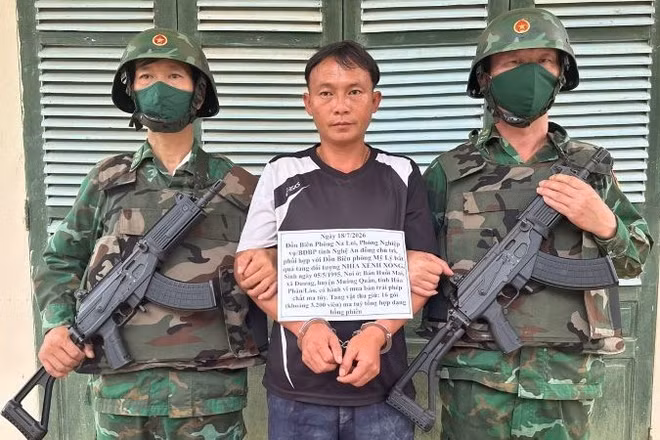 asics
Ngày 18/7/2026
Đồn Biên Phòng Na Loi, Phòng Nghiệp
vụ/BĐBP tỉnh Nghệ An đồng chủ trì,
phối hợp với Đồn Biên phòng Mỹ Lý bắt
quả tang đối tượng NHIA XENH NÔNG,
Sinh ngày 05/5/1995, Nơi ở: Bản Huồi Mai,
xã Đương, huyện Mường Quắn, tỉnh Hủa
Phăn/Lào, có hành vi mua bán trái phép
chất ma túy. Tang vật thu giữ: 16 gói
(khoảng 3.200 viên) ma tuý tổng hợp dạng
hồng phiến